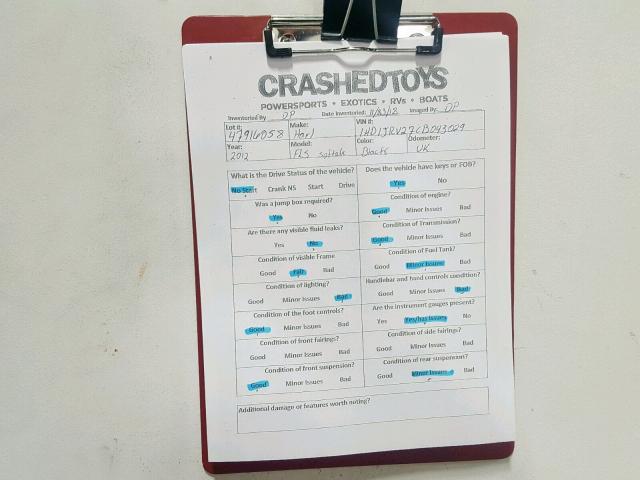 CRASHEDTOYS
POWERSPORTS • EXOTICS • RVs • BOATS
Inventoried By DP Date Inventoried: Imaged By: DP
Lot # 47916058 Make: Harl VIN #:
Year: 2012 Model: FLS Softale Color: Black Odometer: UK
What is the Drive Status of the vehicle? Does the vehicle have keys or FOB?
No Start Crank NS Start Drive Yes No
Was a jump box required? Condition of engine?
Yes No Good Minor Issues Bad
Are there any visible fluid leaks? Condition of Transmission?
Yes No Good Minor Issues Bad
Condition of visible Frame Condition of Fuel Tank?
Good Fair Bad Good Minor Issues Bad
Condition of lighting? Handlebar and hand controls condition?
Good Minor Issues Bad Good Minor Issues Bad
Condition of the foot controls? Are the instrument gauges present?
Good Minor Issues Bad Yes Yes/has issues No
Condition of front fairings? Condition of side fairings?
Good Minor Issues Bad Good Minor Issues Bad
Condition of front suspension? Condition of rear suspension?
Good Minor Issues Bad Good Minor Issues Bad
Additional damage or features worth noting?